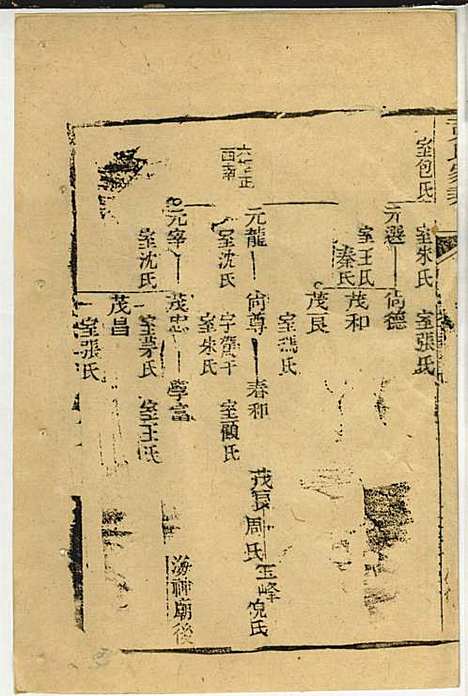 室包氏
室朱氏
室張氏
元選
尙德
室王氏
秦氏
茂和
茂良
室馮氏
元龍
尙尊
春和
茂良
周氏
玉峰
倪氏
西南
室沈氏
室朱氏
室顧氏
元宰
茂忠
學富
海神廟後
室沈氏
室茅氏
室王氏
茂昌
室張氏